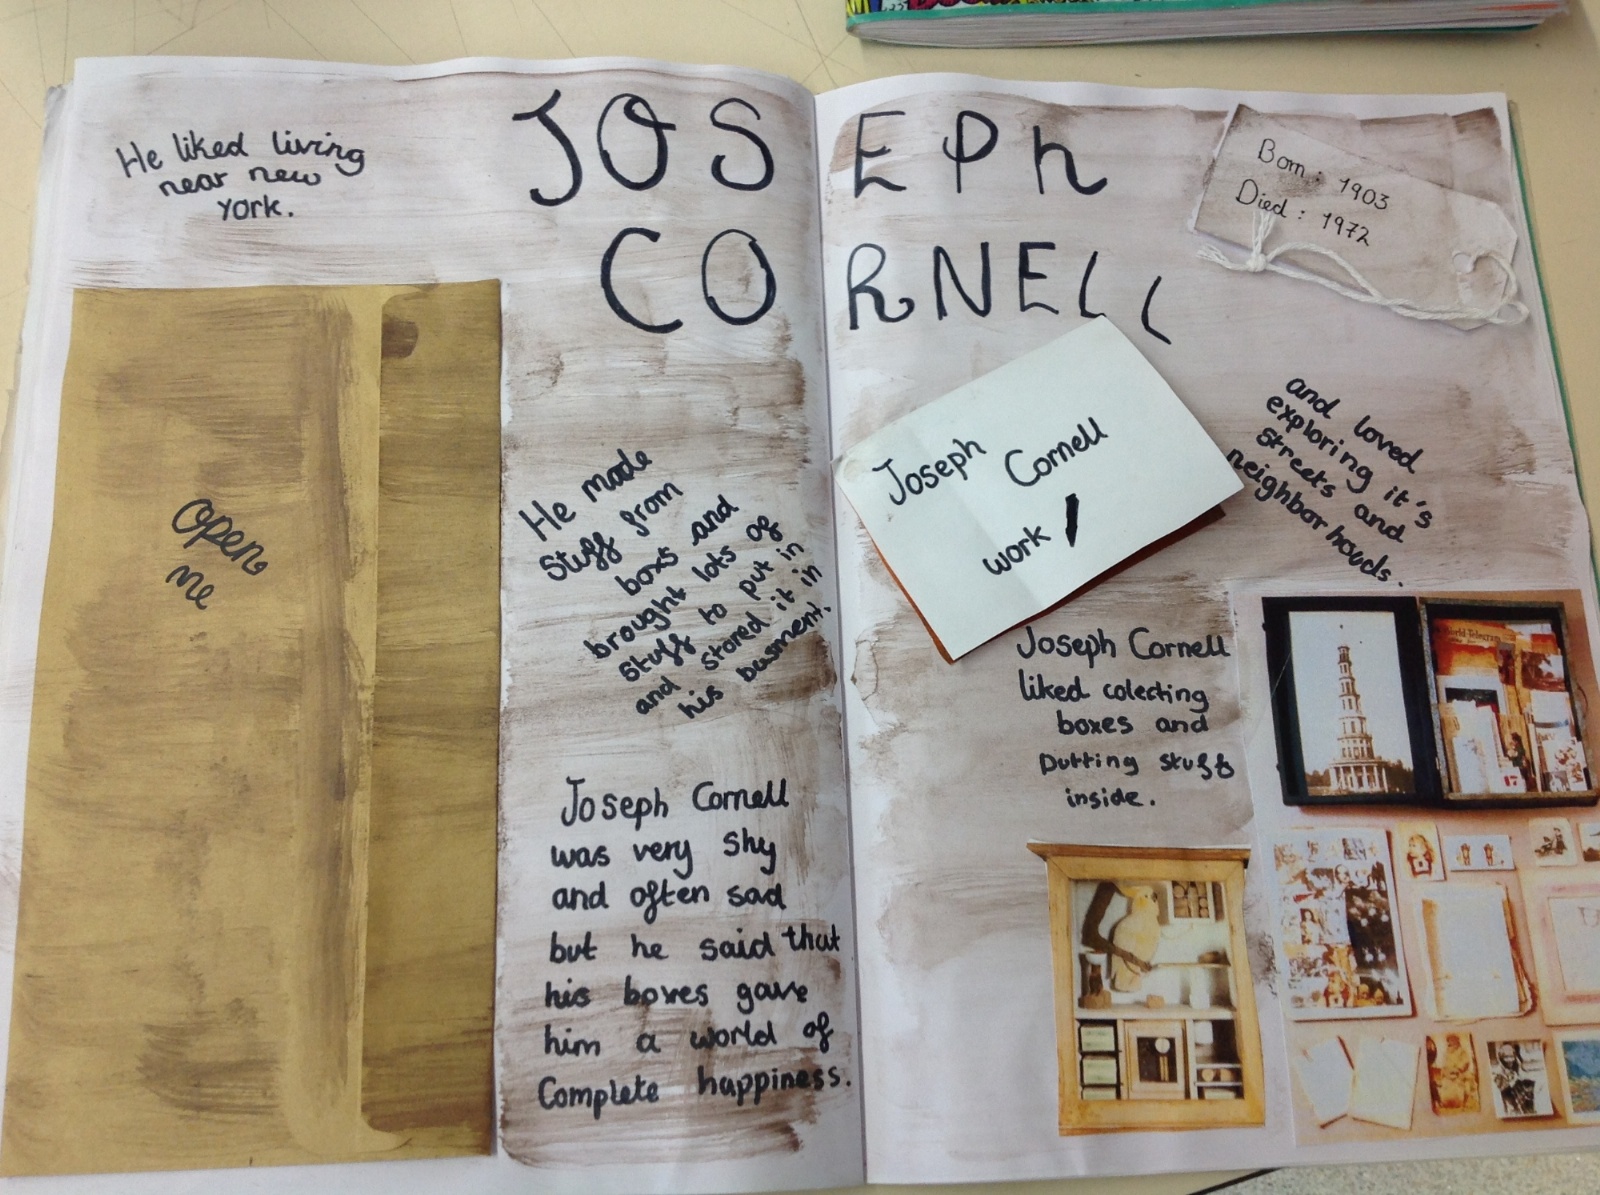 JOSEPh
CORNELL
He liked living
near new
York.
Open
me
He made
stuff from
boxs and
brought lots of
stuff to put in
and stored it in
his basment.
Joseph Cornell
was very shy
and often sad
but he said that
his boxes gave
him a world of
Complete happiness.
Born : 1903
Died : 1972
Joseph Cornell
work
and loved
exploring it's
streets and
neighbor houds.
Joseph Cornell
liked colecting
boxes and
putting stuff
inside.
World-Telegram